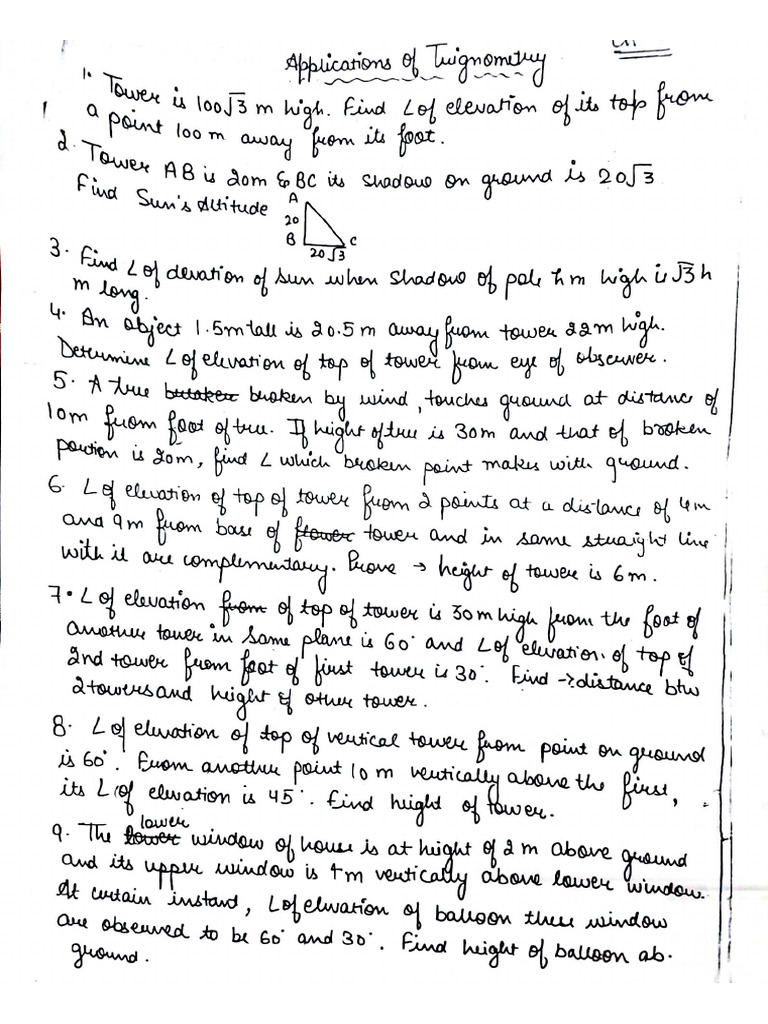 Applications of Trignometry
1. Tower is 100√3 m high. Find ∠ of elevation of its top from
a point 100 m away from its foot.
2. Tower AB is 20m & BC its shadow on ground is 20√3
Find Sun's Altitude
A
20
B
C
20√3
3. Find ∠ of elevation of sun when shadow of pole h m high is √3 h
m long.
4. An object 1.5m tall is 20.5 m away from tower 22m high.
Determine ∠ of elevation of top of tower from eye of observer.
5. A tree broken by wind, touches ground at distance of
10m from foot of tree. If height of tree is 30m and that of broken
portion is 20m, find ∠ which broken point makes with ground.
6. ∠ of elevation of top of tower from 2 points at a distance of 4m
and 9m from base of tower and in same straight line
with it are complementary. Prove → height of tower is 6m.
7. ∠ of elevation from of top of tower is 30m high from the foot of
another tower in same plane is 60° and ∠ of elevation. of top of
2nd tower from foot of first tower is 30°. Find → distance btw
2 towers and height of other tower.
8. ∠ of elevation of top of vertical tower from point on ground
is 60°. From another point 10 m vertically above the first,
its ∠ of elevation is 45°. Find height of tower.
9. The lower window of house is at height of 2m above ground
and its upper window is 4m vertically above lower window.
At certain instant, ∠ of elevation of balloon these window
are observed to be 60° and 30°. Find height of balloon ab.
ground.